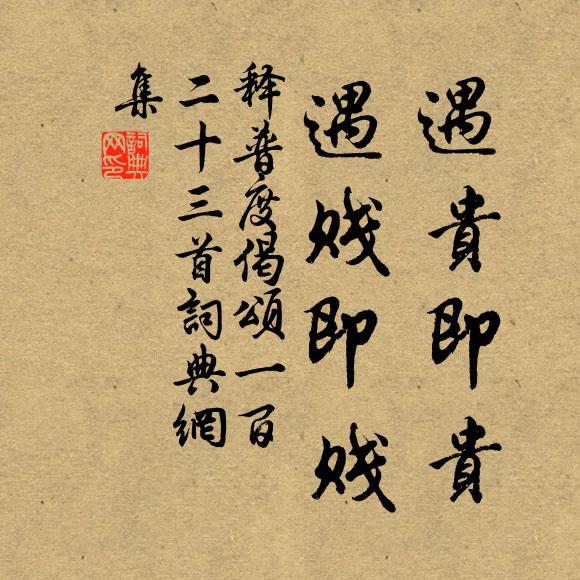 遇貴即貴
遇賤即賤
释普度偈頌一百
二十三首詞典網
集
詞典
网印